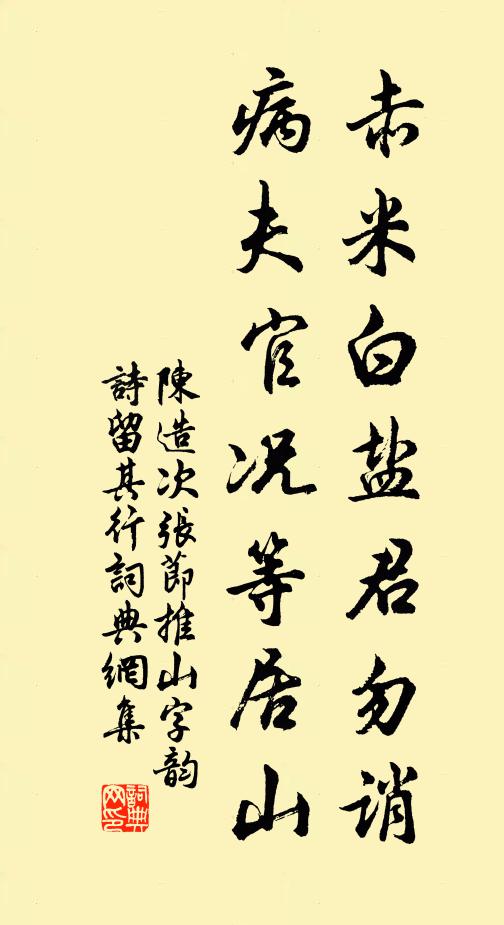 赤米白盐君勿誚
病夫官况等居山
陳造次張節推山字韵
詩留其行詞典網集
詞典网印